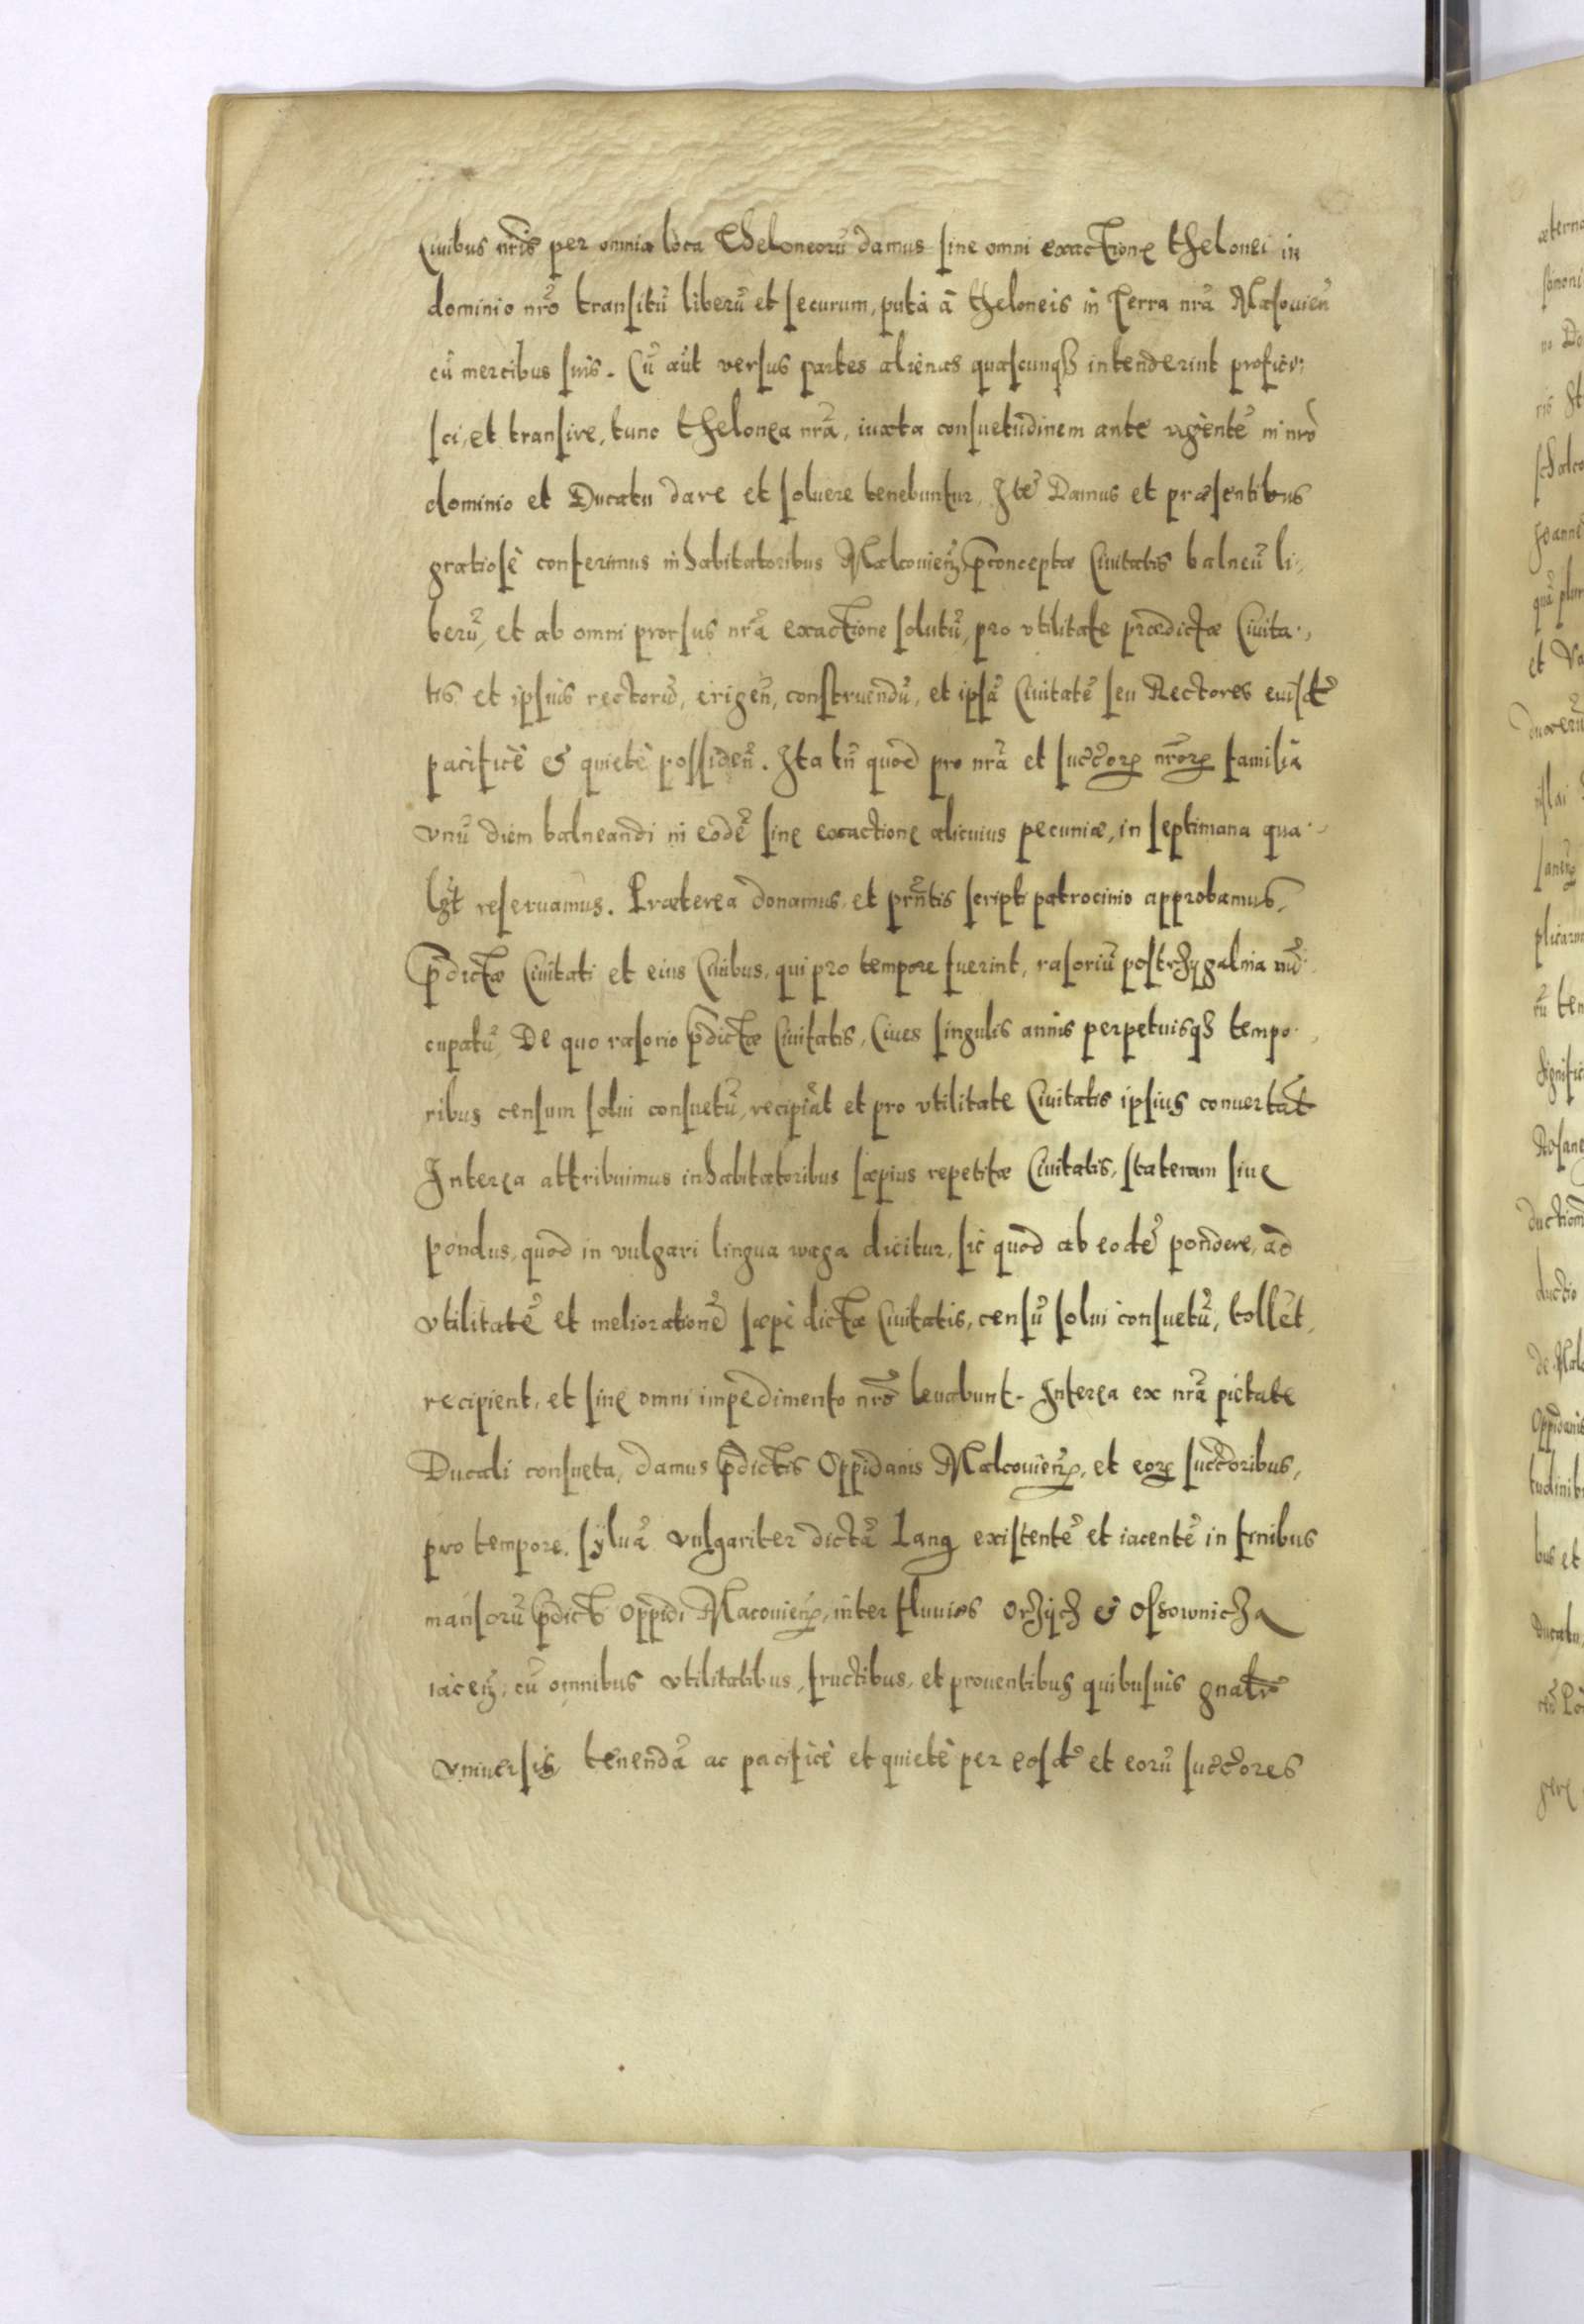 Ciuibus nris̃ per omnia loca Theloneorũ damus sine omni exactione thelonei in
dominio nrõ transitũ liberũ et securum, putà à theloneis in Terra nrã Masouien̄
cũ mercibus suis. Cũ aũt versus partes alienas quascunqз intenderint profici:
sci, et transire, tunc thelonea nrã, iuxta consuetudinem ante vigentẽ in nrõ
dominio et Ducatu dare et soluere tenebuntur. Itẽ Damus et præsentibus
gratiosè conferimus inhabitatoribus Makouien̄, p̄conceptæ Ciuitatis balneũ li:
berũ, et ab omni prorsus nrã exactione solutũ, pro vtilitate prædictæ Ciuita:,
tis et ipsius rectorũ, erigen̄, construendũ, et ipsã Ciuitatẽ seu Rectores euisdẽ
pacificè & quietè possiden̄. Ita tñ quod pro nrã et succ̃oꝝ nrõꝝ familia
vnũ diem balneandi in eodẽ sine exactione alicuius pecuniæ, in septimana qua:
lɜt reseruamus. Præterea donamus, et prñtis scripti patrocinio approbamus,
p̄dictæ Ciuitati et eius Ciuibus, qui pro tempore fuerint, rasoriũ postrzygalnia nũ:
cupatũ, De quo rasorio p̄dictæ Ciuitatis, Ciues singulis annis perpetuisqз tempo:
ribus censum solui consuetũ, recipiãt et pro vtilitate Ciuitatis ipsius conuertãt
Interea attribuimus inhabitatoribus sæpius repetitæ Ciuitatis, stateram siue
pondus, quod in vulgari lingua waga dicitur, sic quod ab eodẽ pondere, ad
vtilitatẽ et meliorationẽ sæpè dictæ Ciuitatis, censũ solui consuetũ, tollẽt,
recipient, et sine omni impedimento nrõ leuabunt. Interea ex nrã pietate
Ducali consueta, damus p̄dictis Oppidanis Makouien̄, et eoꝝ succ̃oribus,
pro tempore, syluã vulgariter dictã Lang existentẽ et iacentẽ in finibus
mansorũ p̄dicti Oppidi Macouien̄, inter fluuios Orzych & Ossownicza
iacen̄, cũ omnibus vtilitatibus, fructibus, et prouentibus quibusuis gnalr̃
vniuersis, tenendã ac pacificè et quietè per eosdẽ et eorũ succ̃ores